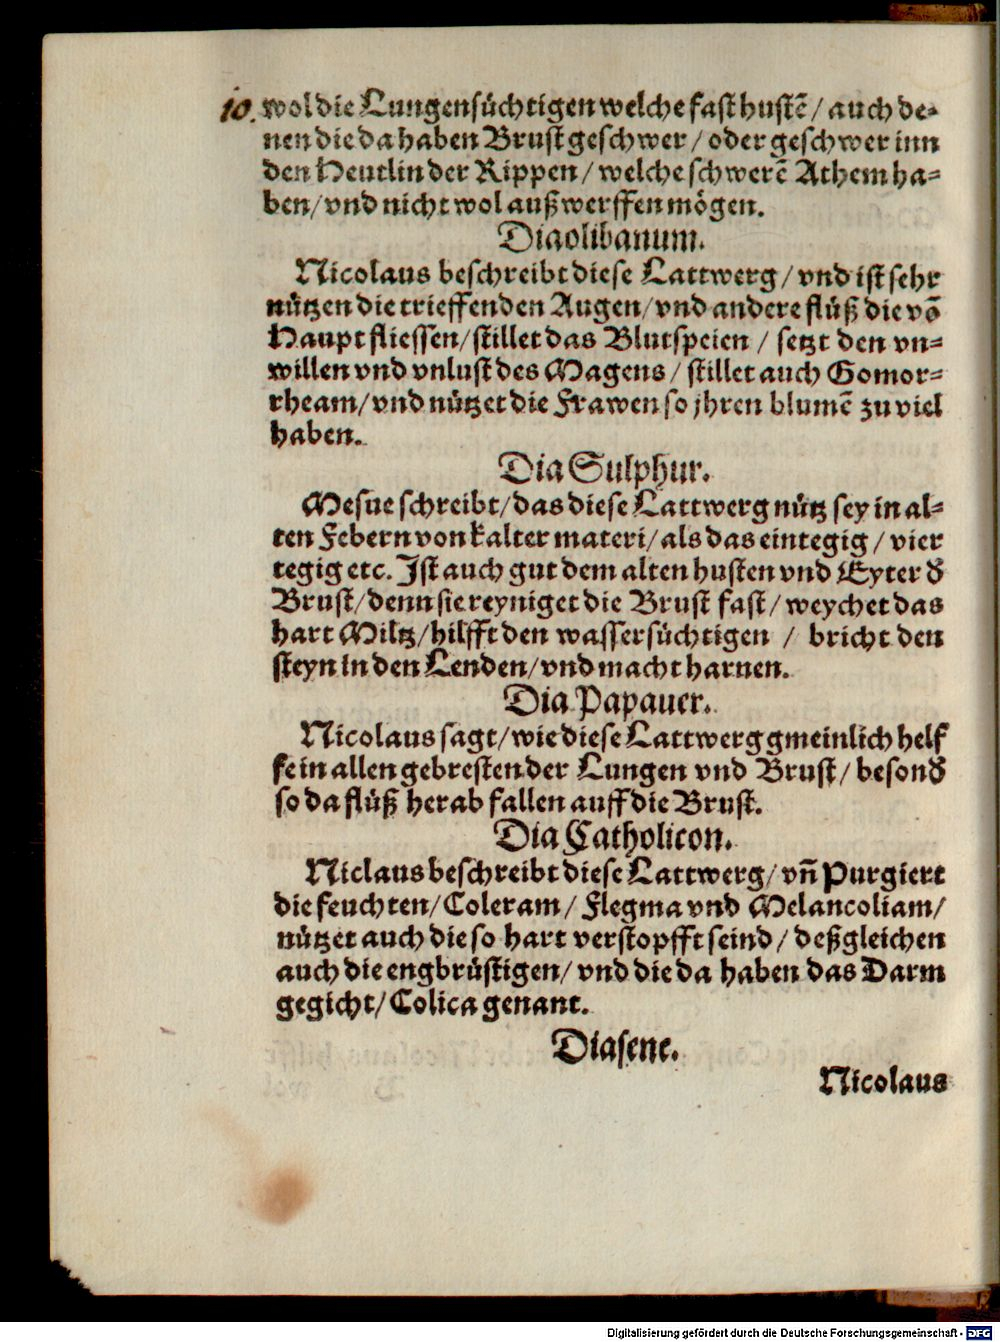 10. wol die Lungensüchtigen welche fast hustē / auch de-
nen die da haben Brustgeschwer / oder geschwer inn
den Heutlin der Rippen / welche schwerē Athem ha-
ben / vnd nicht wol außwerffen mögen.
Diaolibanum.
Nicolaus beschreibt diese Lattwerg / vnd ist sehr
nützen die trieffenden Augen / vnd andere flüß die võ
Haupt fliessen / stillet das Blutspeien / setzt den vn-
willen vnd vnlust des Magens / stillet auch Gomor-
rheam / vnd nützet die Frawen so jhren blumē zu viel
haben.
Dia Sulphur.
Mesue schreibt / das diese Lattwerg nütz sey in al-
ten Febern von kalter materi / als das eintegig / vier
tegig etc. Ist auch gut dem alten husten vnd Eyter d̕
Brust / denn sie reyniget die Brust fast / weychet das
hart Miltz / hilfft den wassersüchtigen / bricht den
steyn in den Lenden / vnd macht harnen.
Dia Papauer.
Nicolaus sagt / wie diese Lattwerg gmeinlich helf
fe in allen gebresten der Lungen vnd Brust / besond̕
so da flüß herab fallen auff die Brust.
Dia Catholicon.
Niclaus beschreibt diese Lattwerg / vñ Purgiert
die feuchten / Coleram / Flegma vnd Melancoliam /
nützet auch die so hart verstopfft seind / deßgleichen
auch die engbrüstigen / vnd die da haben das Darm
gegicht / Colica genant.
Diasene.
Nicolaus
Digitalisierung gefördert durch die Deutsche Forschungsgemeinschaft - DFG